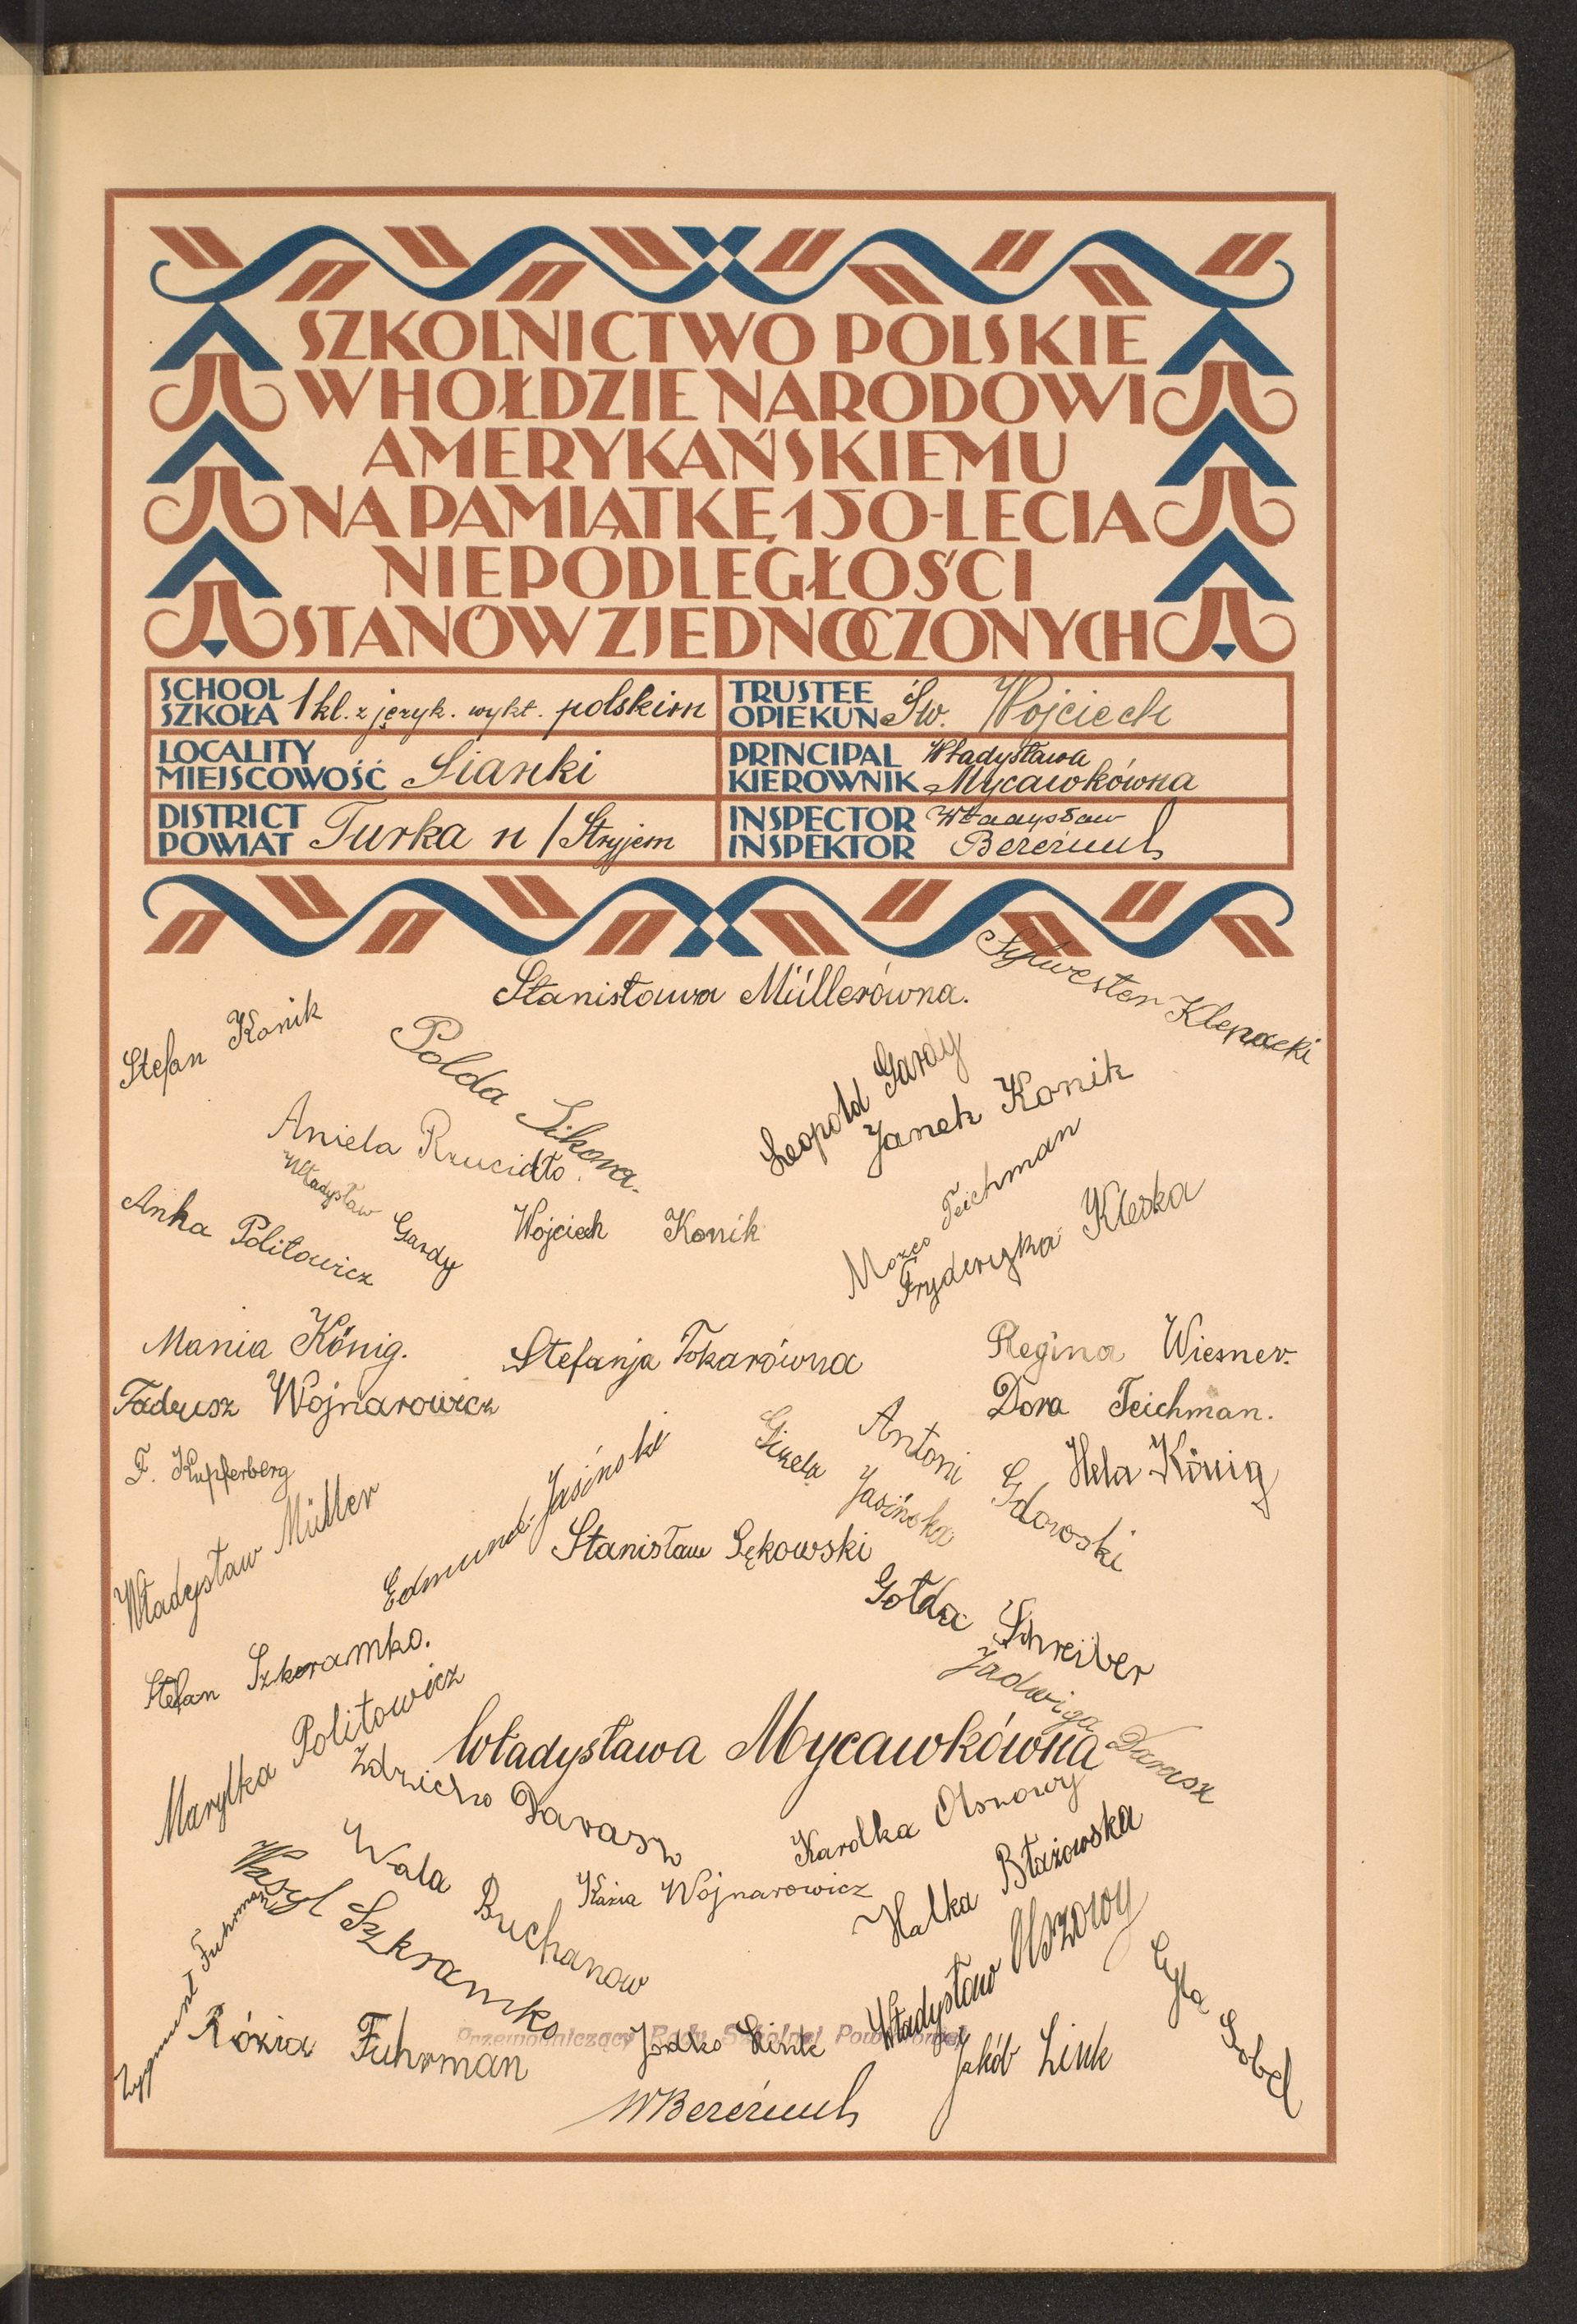 SZKOLNICTWO POLSKIE
W HOŁDZIE NARODOWI
AMERYKAŃSKIEMU
NA PAMIĄTKĘ 150-LECIA
NIEPODLEGŁOŚCI
STANÓW ZJEDNOCZONYCH
SCHOOL
SZKOŁA 1 kl. z język. wykł. polskim
TRUSTEE
OPIEKUN Św. Wojciech
LOCALITY
MIEJSCOWOŚĆ Sianki
PRINCIPAL Władysława
KIEROWNIK Mycawkówna
DISTRICT
POWIAT Turka n/Stryjem
INSPECTOR Władysław
INSPEKTOR
Sylwester Klepacki
Stanisława Müllerówna.
Stefan Konik
Polda Sikora.
Leopold Gardy
Janek Konik
Aniela Rzucidło.
Władysław Gardy
Anka Politowicz
Wojciech Konik
Teichman
Fryderyka Kleska
Mania König.
Stefanja Tokarówna
Regina Wiesner.
Tadeusz Wojnarowicz
Dora Teichman.
F. Kupferberg
Edmund Jasiński
Gizela Jasińska
Antoni Gdowski
Hela König
Władysław Müller
Stanisław Sękowski
Gołda Schreiber
Stefan Szkramko.
Jadwiga Darasz
Marylka Politowicz
Władysława Mycawkówna
Zdzicho Darasz
Karolka Olszowy
Wala Buchanow
Kazia Wojnarowicz
Halka Błażowska
Wasyl Szkramko
Zygmunt Fuhrman
Władysław Olszowy
Cyla Sobel
Rózia Fuhrman
Przewodniczący Rady Szkolnej Powiatowej
Link
Jakób Link